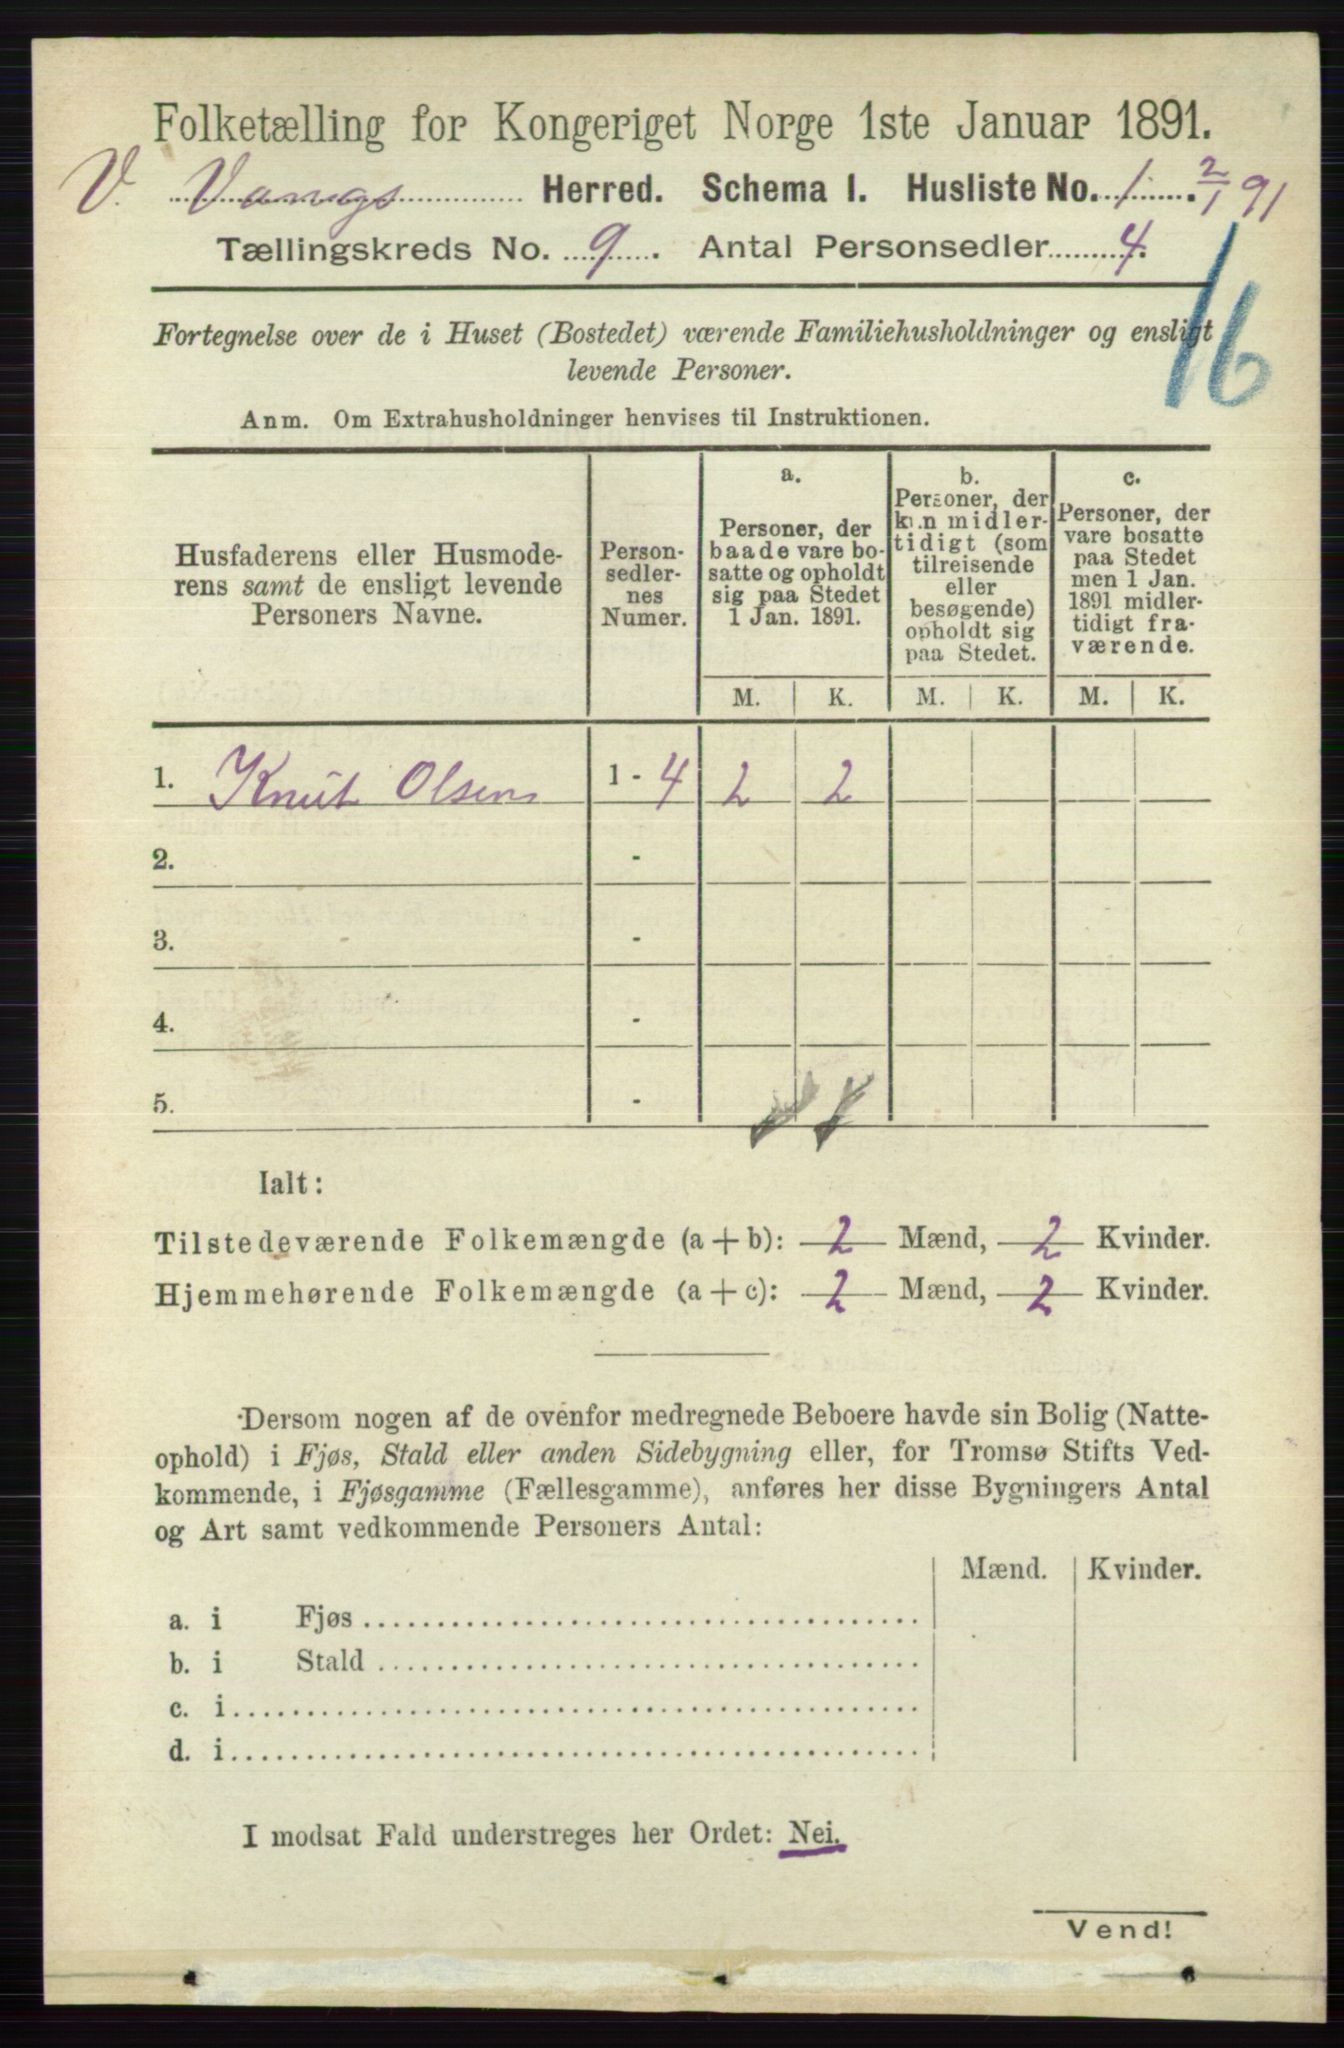 Folketælling for Kongeriget Norge 1ste Januar 1891.
V. Vangs Herred. Schema I. Husliste No. 1. 2/1 91
Tællingskreds No. 9. Antal Personsedler 4.
16
Fortegnelse over de i Huset (Bostedet) værende Familiehusholdninger og ensligt
levende Personer.
Anm. Om Extrahusholdninger henvises til Instruktionen.
Husfaderens eller Husmode-
rens samt de ensligt levende
Personers Navne.
Person-
sedler-
nes
Numer.
a.
Personer, der
baade vare bo-
satte og opholdt
sig paa Stedet
1 Jan. 1891.
b.
Personer, der
kun midler-
tidigt (som
tilreisende
eller
besøgende)
opholdt sig
paa Stedet.
c.
Personer, der
vare bosatte
paa Stedet
men 1 Jan.
1891 midler-
tidigt fra-
værende.
M. K. M. K. M. K.
1. Knut Olsen 1 - 4 2 2
2. -
3. -
4. -
5. -
Ialt:
Tilstedeværende Folkemængde (a + b): 2 Mænd, 2 Kvinder.
Hjemmehørende Folkemængde (a + c): 2 Mænd, 2 Kvinder.
Dersom nogen af de ovenfor medregnede Beboere havde sin Bolig (Natte-
ophold) i Fjøs, Stald eller anden Sidebygning eller, for Tromsø Stifts Ved-
kommende, i Fjøsgamme (Fællesgamme), anføres her disse Bygningers Antal
og Art samt vedkommende Personers Antal:
Mænd. Kvinder.
a. i Fjøs
b. i Stald
c. i
d. i
I modsat Fald understreges her Ordet: Nei.
Vend!